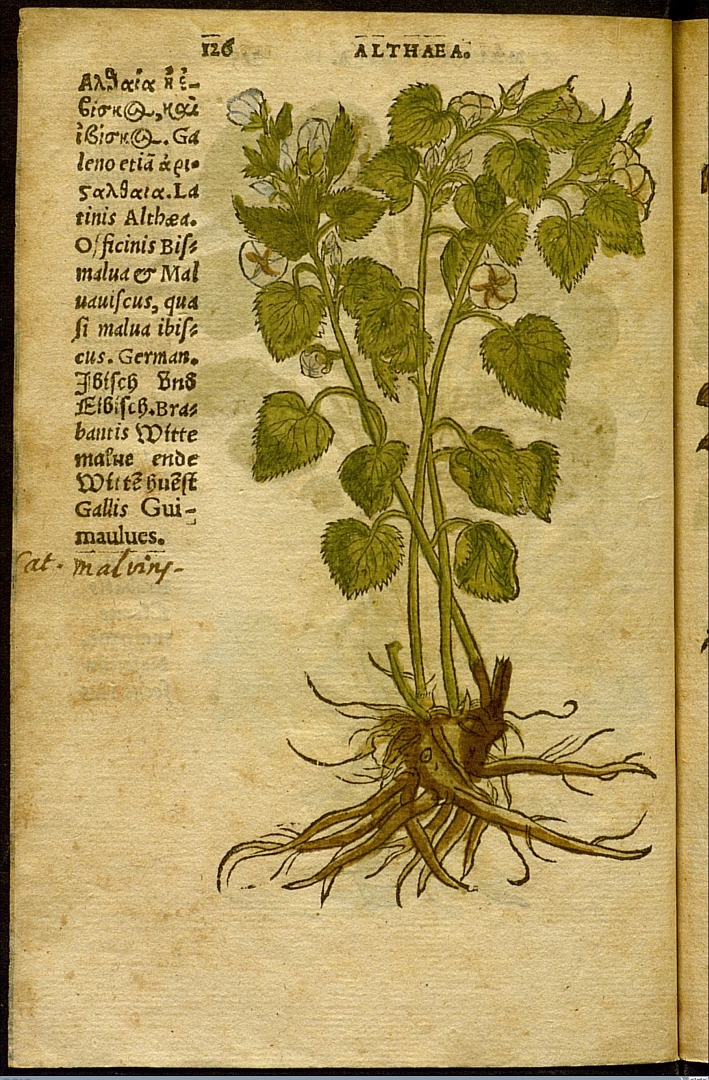 126
ALTHAEA.
Αλθαία ἢ ἐ-
βίσκος, καὶ
ἰβίσκος. Ga
leno etiā ἀρι-
ςαλθαια. La
tinis Althæa.
Officinis Bis-
malua & Mal
uauiscus, qua
si malua ibis-
cus. German.
Ibisch Vnd
Eibisch. Bra-
bantis Witte
malue ende
Wittē huēst
Gallis Gui-
maulues.
Cat. malvins-